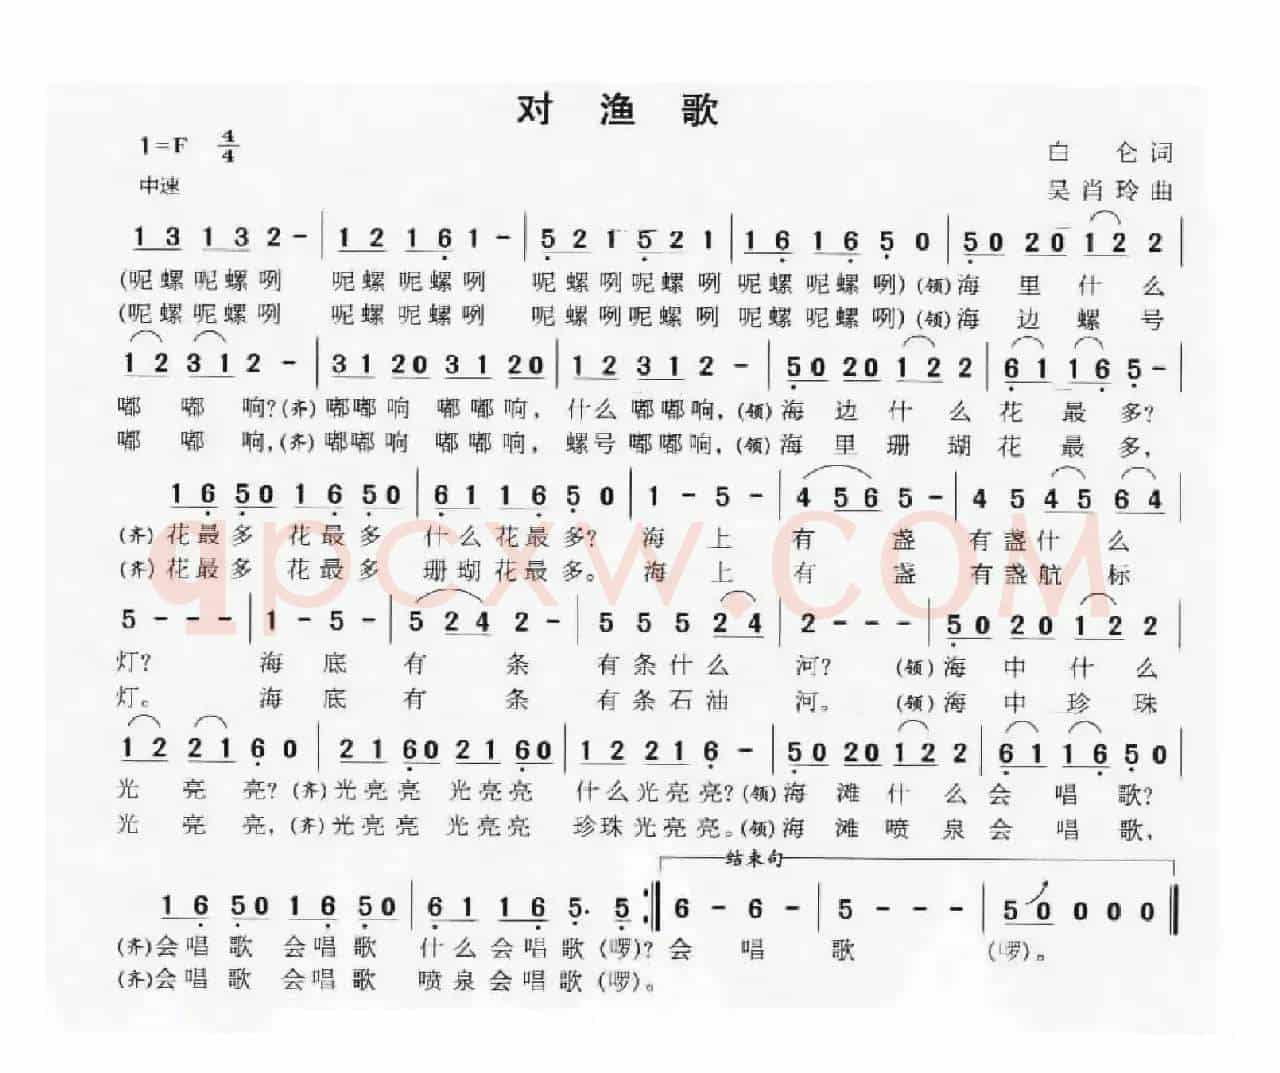 对 渔 歌
1=F 4/4
白 仑 词
中速
吴肖玲 曲
1 3 1 3 2 - | 1 2 1 6 1 - | 5 2 1 5 2 1 | 1 6 1 6 5 0 | 5 0 2 0 1 2 2
(呢螺呢螺咧 呢螺呢螺咧 呢螺咧呢螺咧 呢螺呢螺咧)(领)海 里 什 么
(呢螺呢螺咧 呢螺呢螺咧 呢螺咧呢螺咧 呢螺呢螺咧)(领)海 边 螺 号
1 2 3 1 2 - | 3 1 2 0 3 1 2 0 | 1 2 3 1 2 - | 5 0 2 0 1 2 2 | 6 1 1 6 5 -
嘟 嘟 响?(齐)嘟嘟响 嘟嘟响, 什么 嘟嘟响,(领)海 边 什 么 花 最 多?
嘟 嘟 响,(齐)嘟嘟响 嘟嘟响, 螺号 嘟嘟响,(领)海 里 珊 瑚 花 最 多,
1 6 5 0 1 6 5 0 | 6 1 1 6 5 0 | 1 - 5 - | 4 5 6 5 - | 4 5 4 5 6 4
(齐)花最多 花最多 什么花最多? 海 上 有 盏 有盏什 么
(齐)花最多 花最多 珊瑚花最多。 海 上 有 盏 有盏航 标
qpcxw.COM
5 - - - | 1 - 5 - | 5 2 4 2 - | 5 5 5 2 4 | 2 - - - | 5 0 2 0 1 2 2
灯? 海 底 有 条 有条什么 河? (领)海 中 什 么
灯。 海 底 有 条 有条石油 河。 (领)海 中 珍 珠
1 2 2 1 6 0 | 2 1 6 0 2 1 6 0 | 1 2 2 1 6 - | 5 0 2 0 1 2 2 | 6 1 1 6 5 0
光 亮 亮?(齐)光亮亮 光亮亮 什么光亮亮?(领)海 滩 什 么 会 唱 歌?
光 亮 亮,(齐)光亮亮 光亮亮 珍珠光亮亮。(领)海 滩 喷 泉 会 唱 歌,
结束句
1 6 5 0 1 6 5 0 | 6 1 1 6 5. 5 :| 6 - 6 - | 5 - - - | 5 0 0 0 0
(齐)会唱歌 会唱歌 什么会唱歌(啰)?会 唱 歌 (啰)。
(齐)会唱歌 会唱歌 喷泉会唱歌(啰)。